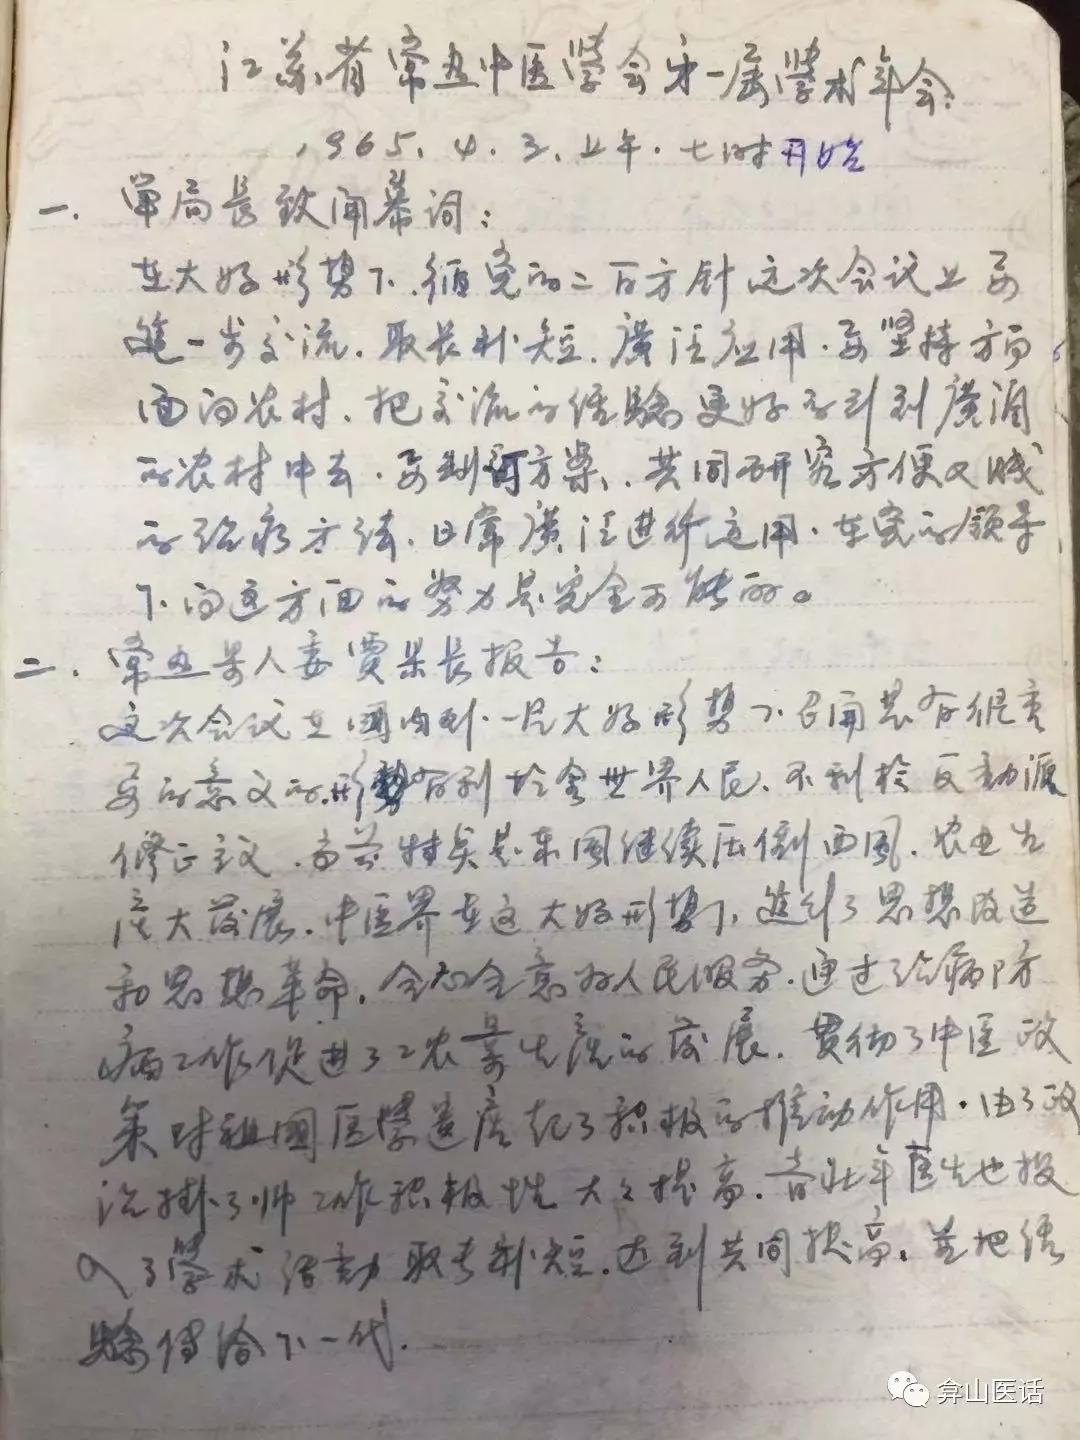 江苏省常熟中医學会第一届學术年会:
1965.4.3.上午.七时开始
一. 常局長致闹幕词:
在大好形势下.循党的二百方针这次会议上要
進一步交流.取長补短.廣泛应用.要坚持方向
面向农村.把交流的经驗更好的引到廣泗
的农村中去.要制訂方案.共同研究方便又賎
的治疗方法.日常廣泛进行运用.在党的领导
下.向这方面的努力是完全可能的。
二. 常熟县人委贾县長报告:
这次会议在國内外.一片大好形势下.召闹是有很重
要的意义的.形势有利於全世界人民.不利於反动派
修正主议.当前特点是东風继续压倒西風.农业生
産大發展.中医界在这大好形势下,進行了思想改造
和思想革命.全心全意为人民服务.通过治病防
病工作促进了工农業生產的發展.贯彻了中医政
策对祖國医學遗産起了积极的推动作用.由于政
治掛了帅工作积极性大大提高.青壮年医生也投
入了學术活動取长补短.达到共同提高.并把经
驗传给下一代.
弇山医话